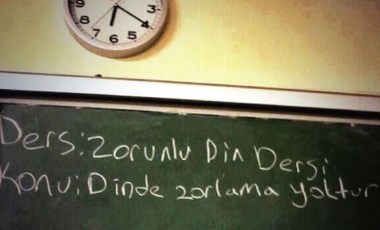 9 3
8 4
7 6 5
Ders: Zorunlu Din Dersi
Konu: Dinde zorlama yoktur